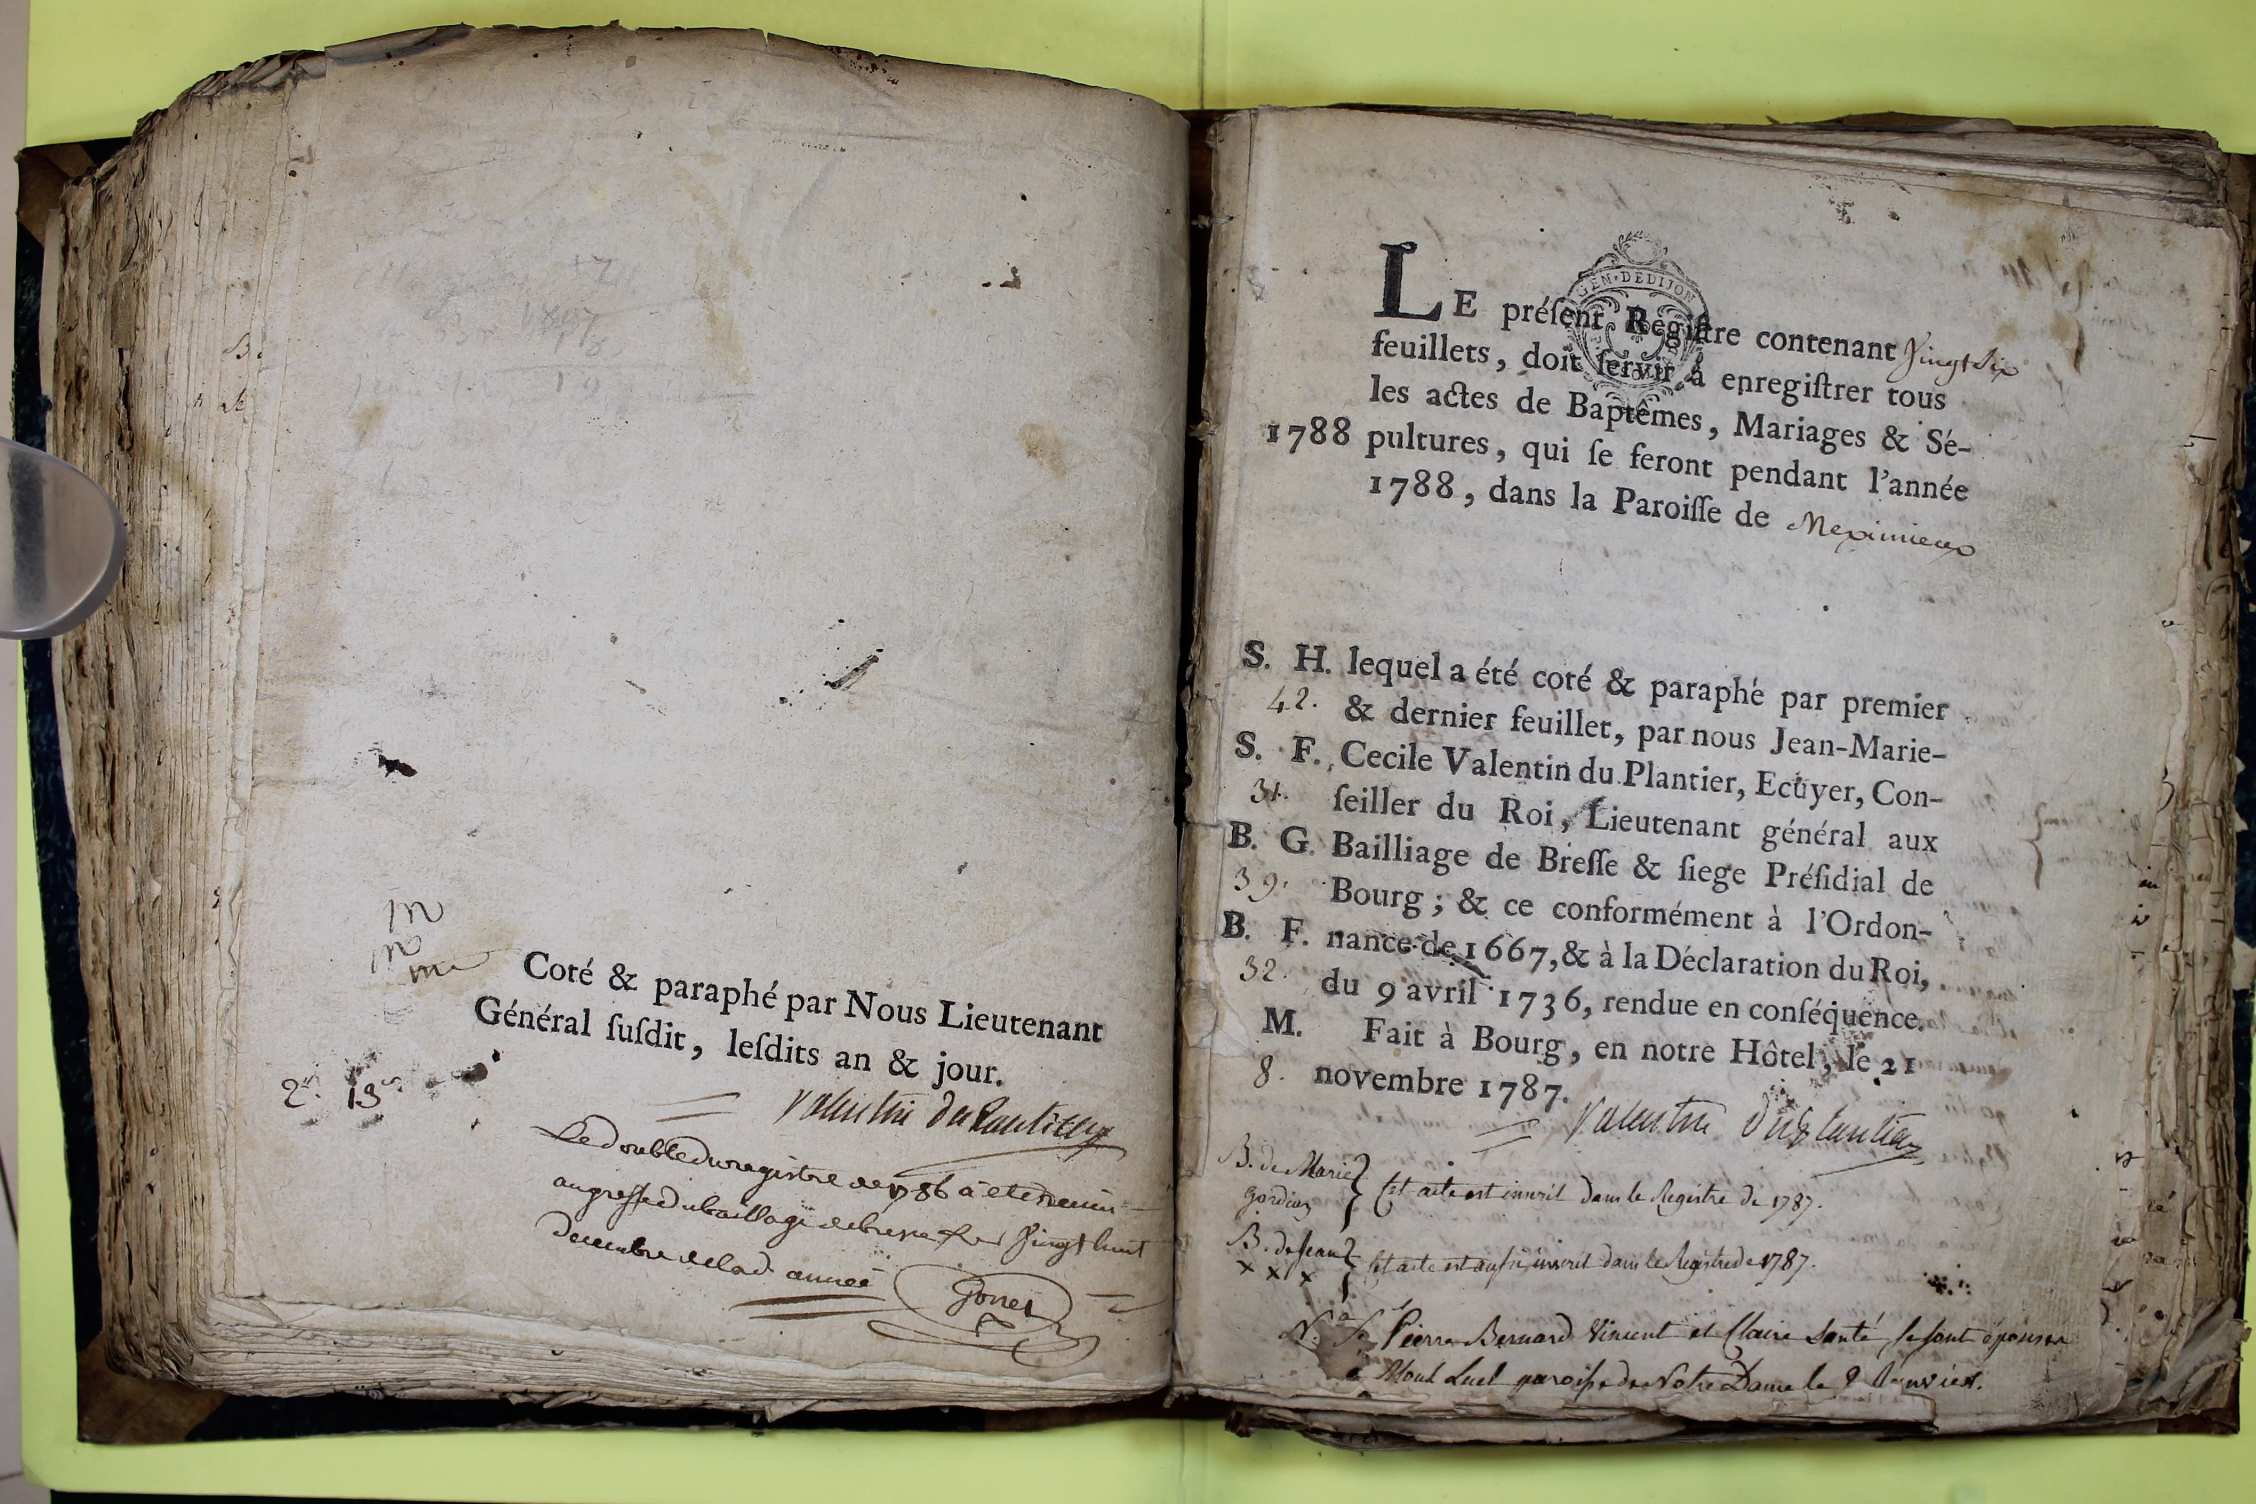 m
m
me
Coté & paraphé par Nous Lieutenant
Général ſuſdit, leſdits an & jour.
2. 13
Valentin du Plantier
Le double du registre de 1786 a eté remis
au greffe du bailliage de bresse le vingt huit
decembre de lad. année
Gonet
GEN. DE DIJON
LE préſent Regiſtre contenant Vingt Six
feuillets, doit ſervir à enregiſtrer tous
les actes de Baptêmes, Mariages & Sé-
1788 pultures, qui ſe feront pendant l'année
1788, dans la Paroiſſe de Meximieux
S. H. lequel a été coté & paraphé par premier
42. & dernier feuillet, par nous Jean-Marie-
S. F. Cecile Valentin du Plantier, Ecuyer, Con-
31. ſeiller du Roi, Lieutenant général aux
B. G. Bailliage de Breſſe & ſiege Préſidial de
39. Bourg ; & ce conformément à l'Ordon-
B. F. nance de 1667, & à la Déclaration du Roi,
32. du 9 avril 1736, rendue en conſéquence.
M. Fait à Bourg, en notre Hôtel, le 21
8. novembre 1787.
Valentin Duplantier
B. de Marie
Gordian
Cet acte est inscrit dans le Registre de 1787.
B. de Jean
x x x
Cet acte est aussi inscrit dans le Registre de 1787.
N.a Pierre Bernard Vincent et Claire Santé se sont épousés
à Mont Luel paroisse de Notre Dame le 8 Janvier.